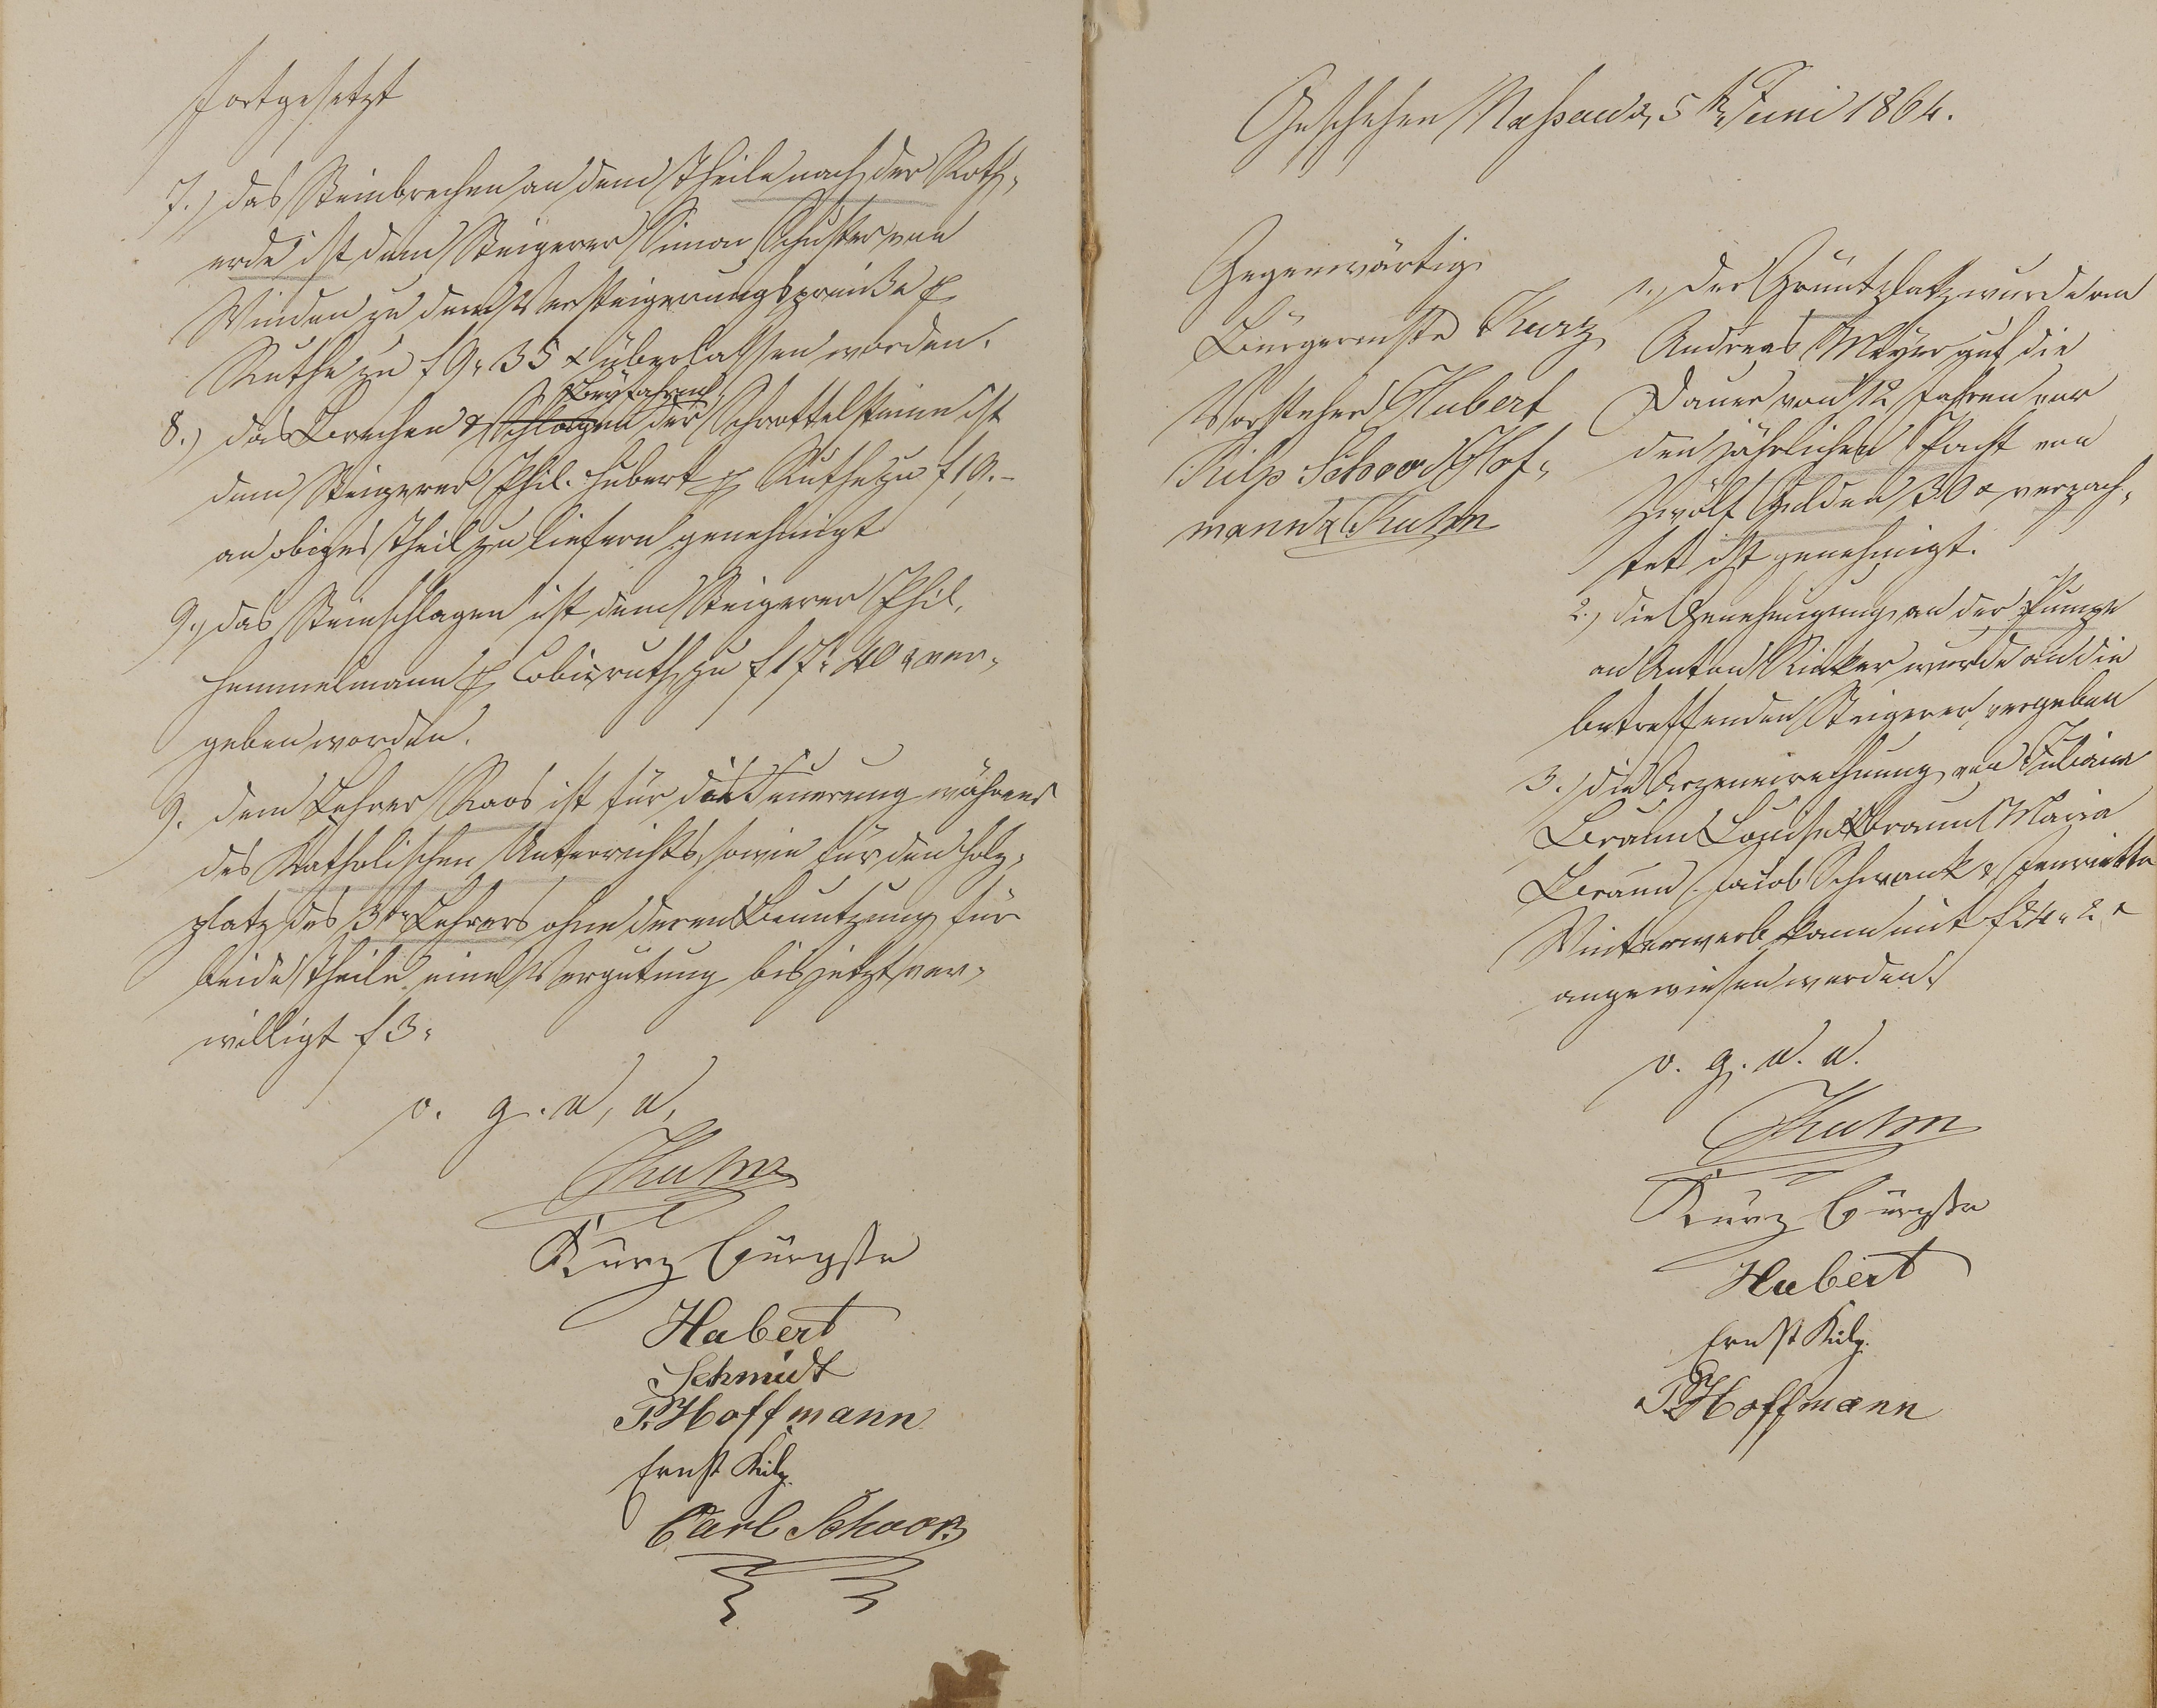 fortgesetzt
7.) das Steinbrechen an dem Theile nach der Roth-
erde ist dem Steigerer Simon Schuster von
Winden zu dem Versteigerungspreiße p
Ruthe zu f 9. 35 x überlassen worden.
Beifahren
8.) das Brechen & Schlagen der Schrottelsteine ist
dem Steigerer Phil. Hubert p Ruthe zu f 10.-
an obiges Theil zu liefern genehmigt
9.) das Steinschlagen ist dem Steigerer Phil.
Hemmelmann p Cobicruth zu f 17. 40 x ver-
geben worden.
9. dem Lehrer Raos ist für die Feuerung während
des Katholischen Unterrichts, sowie für den Holz-
platz des 3ten Lehrers ohne deren Benutzung für
beide Theile eine Vergütung bis jetzt ver-
willigt f 3.
v. g. u. u.
Kuhn
Kurz Bürgstr
Hubert
Schmidt
P. Hoffmann
Ernst Kilp.
Carl Schoor
Geschehen Nassau d. 5ten Juni 1864.
Gegenwärtig
Bürgermstr Kurz
Vorsteher Hubert
Kilp Schoor Hof-
mann & Kuhn
1.) Der Grüntzplatz wurde an
Andreas Meyer auf die
Dauer von 12 Jahren vor
den jährlichen Pacht von
Zwölf Gulden 30 x verpach-
tet ist genehmigt.
2.) die Genehmigung an der Pumpe
an Anton Rinker wurde an die
betreffenden Steigerer vergeben
3.) die Arzeneirechnung von Juliane
Braun Louise Braun Maria
Braun Jacob Schwank & Henriette
Winterwerb kann mit f 24. 2 x
angewiesen werden.
v. g. u. u.
Kuhn
Kurz Bürgstr
Hubert
Ernst Kilp.
P. Hoffmann